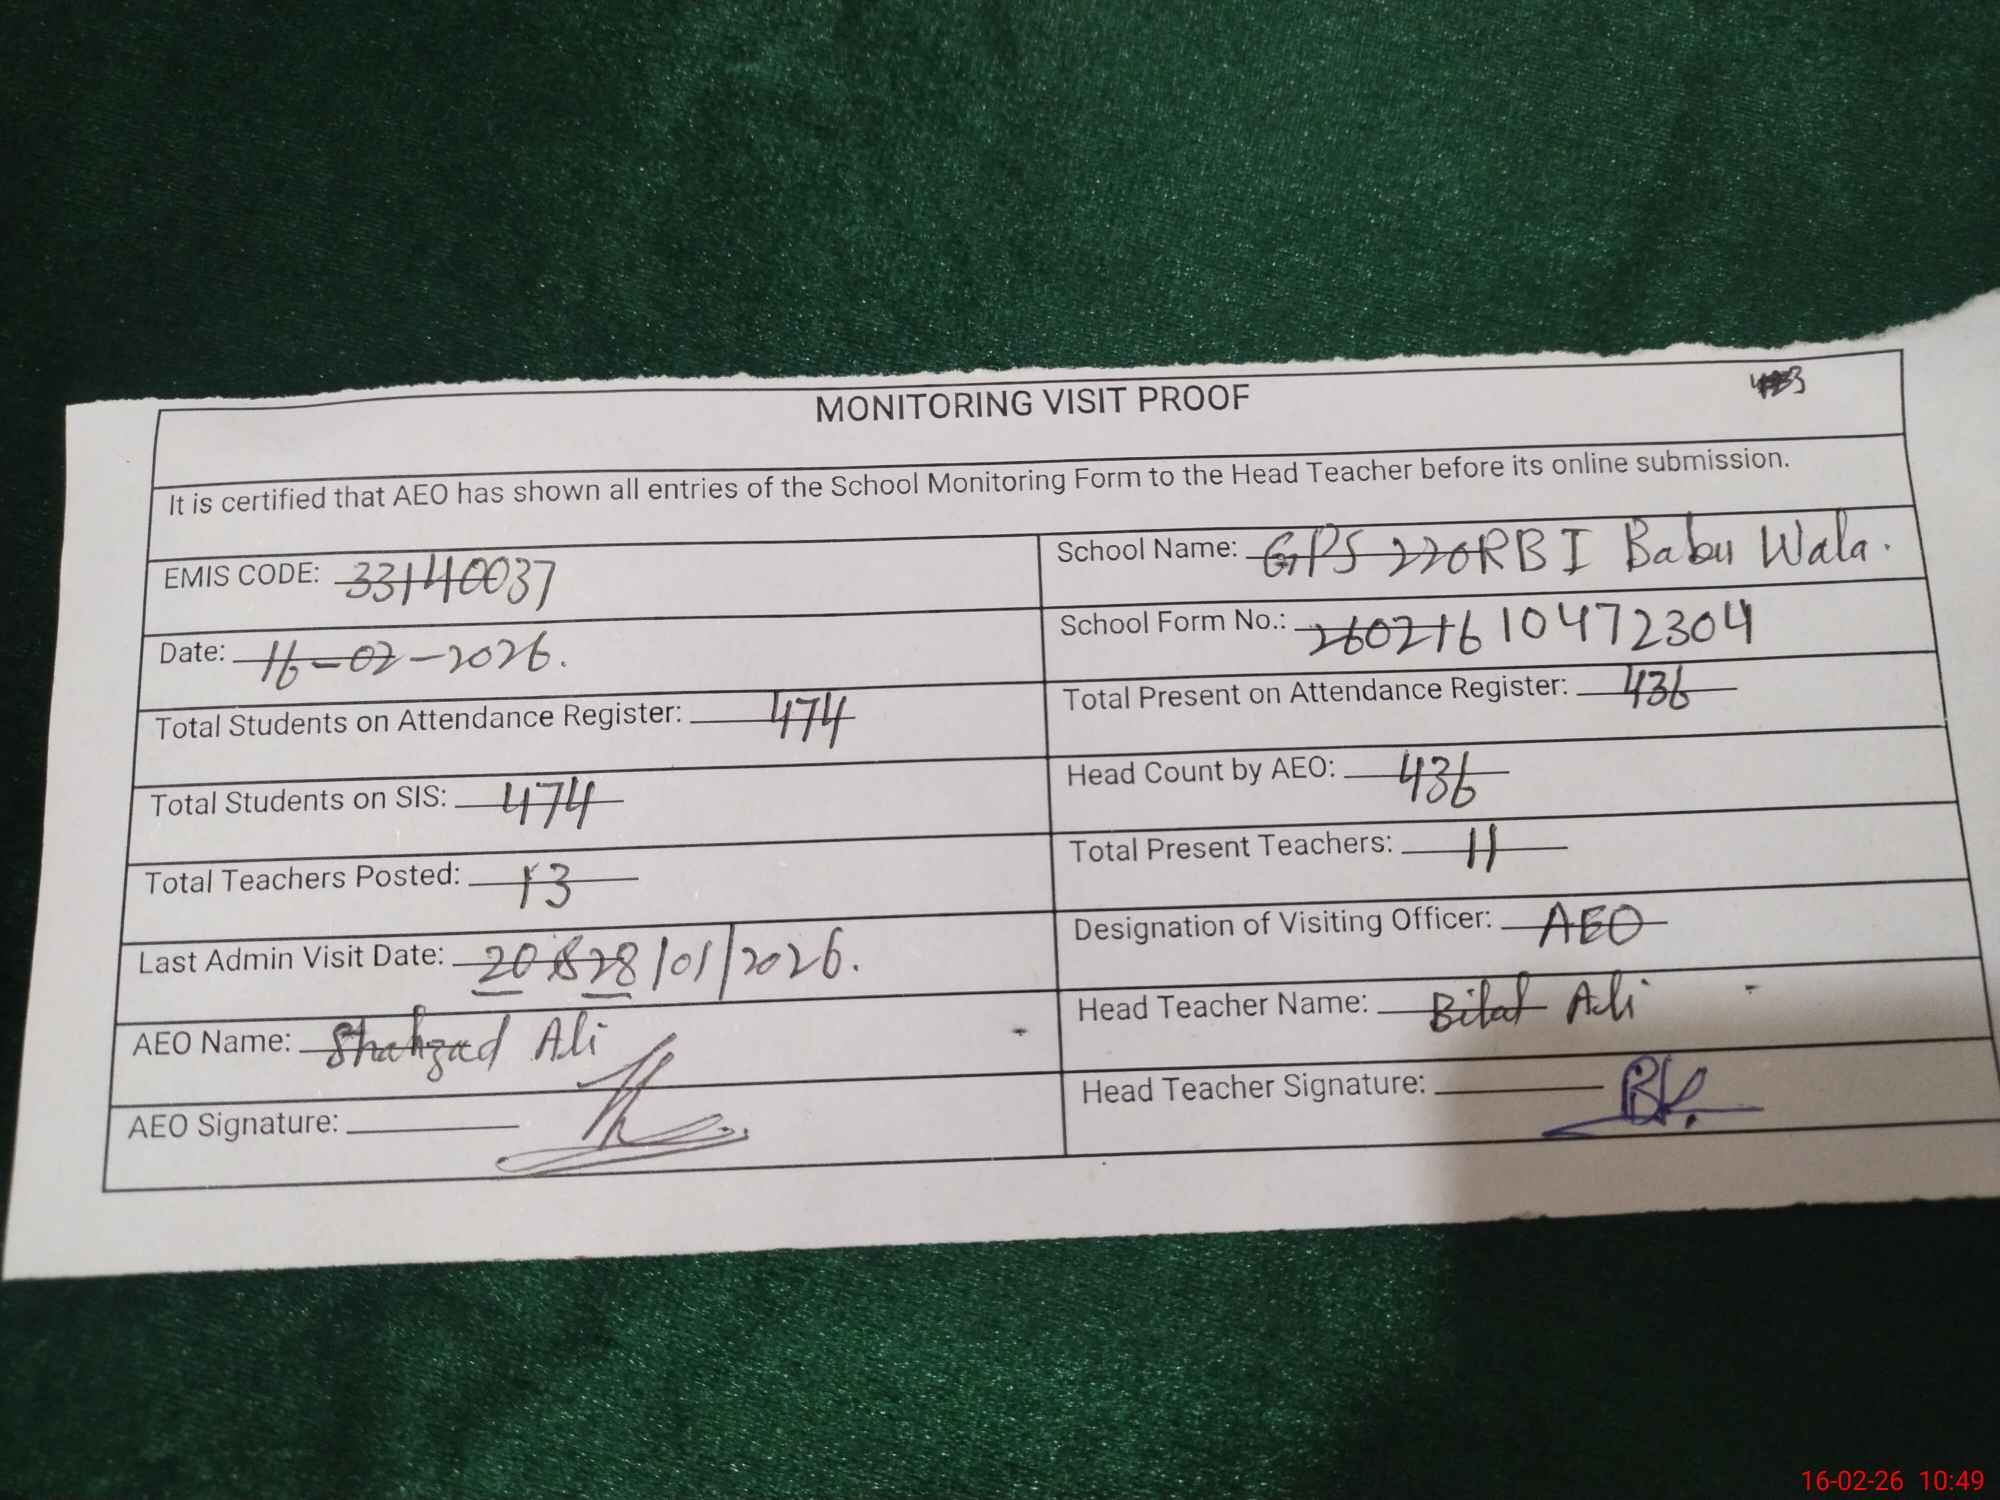 MONITORING VISIT PROOF
It is certified that AEO has shown all entries of the School Monitoring Form to the Head Teacher before its online submission.
EMIS CODE: 33140037
School Name: GPS 220RB I Babu Wala.
Date: 16-02-2026.
School Form No.: 26021610472304
Total Students on Attendance Register: 474
Total Present on Attendance Register: 436
Total Students on SIS: 474
Head Count by AEO: 436
Total Teachers Posted: 13
Total Present Teachers: 11
Last Admin Visit Date: 20 & 28/01/2026.
Designation of Visiting Officer: AEO
AEO Name: Shahzad Ali
Head Teacher Name: Bilal Ali
AEO Signature:
Head Teacher Signature:
16-02-26 10:49